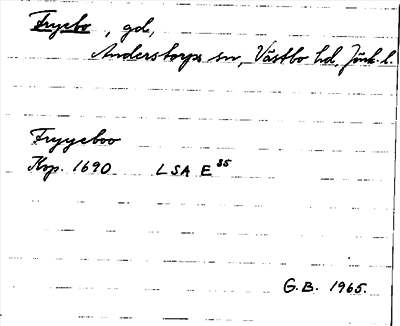 Frycbo, gd,
Anderstorps sn, Västbo hd, Jönk. l.
Fryyeboo
Kop. 1690 LSA E 35
G.B. 1965.